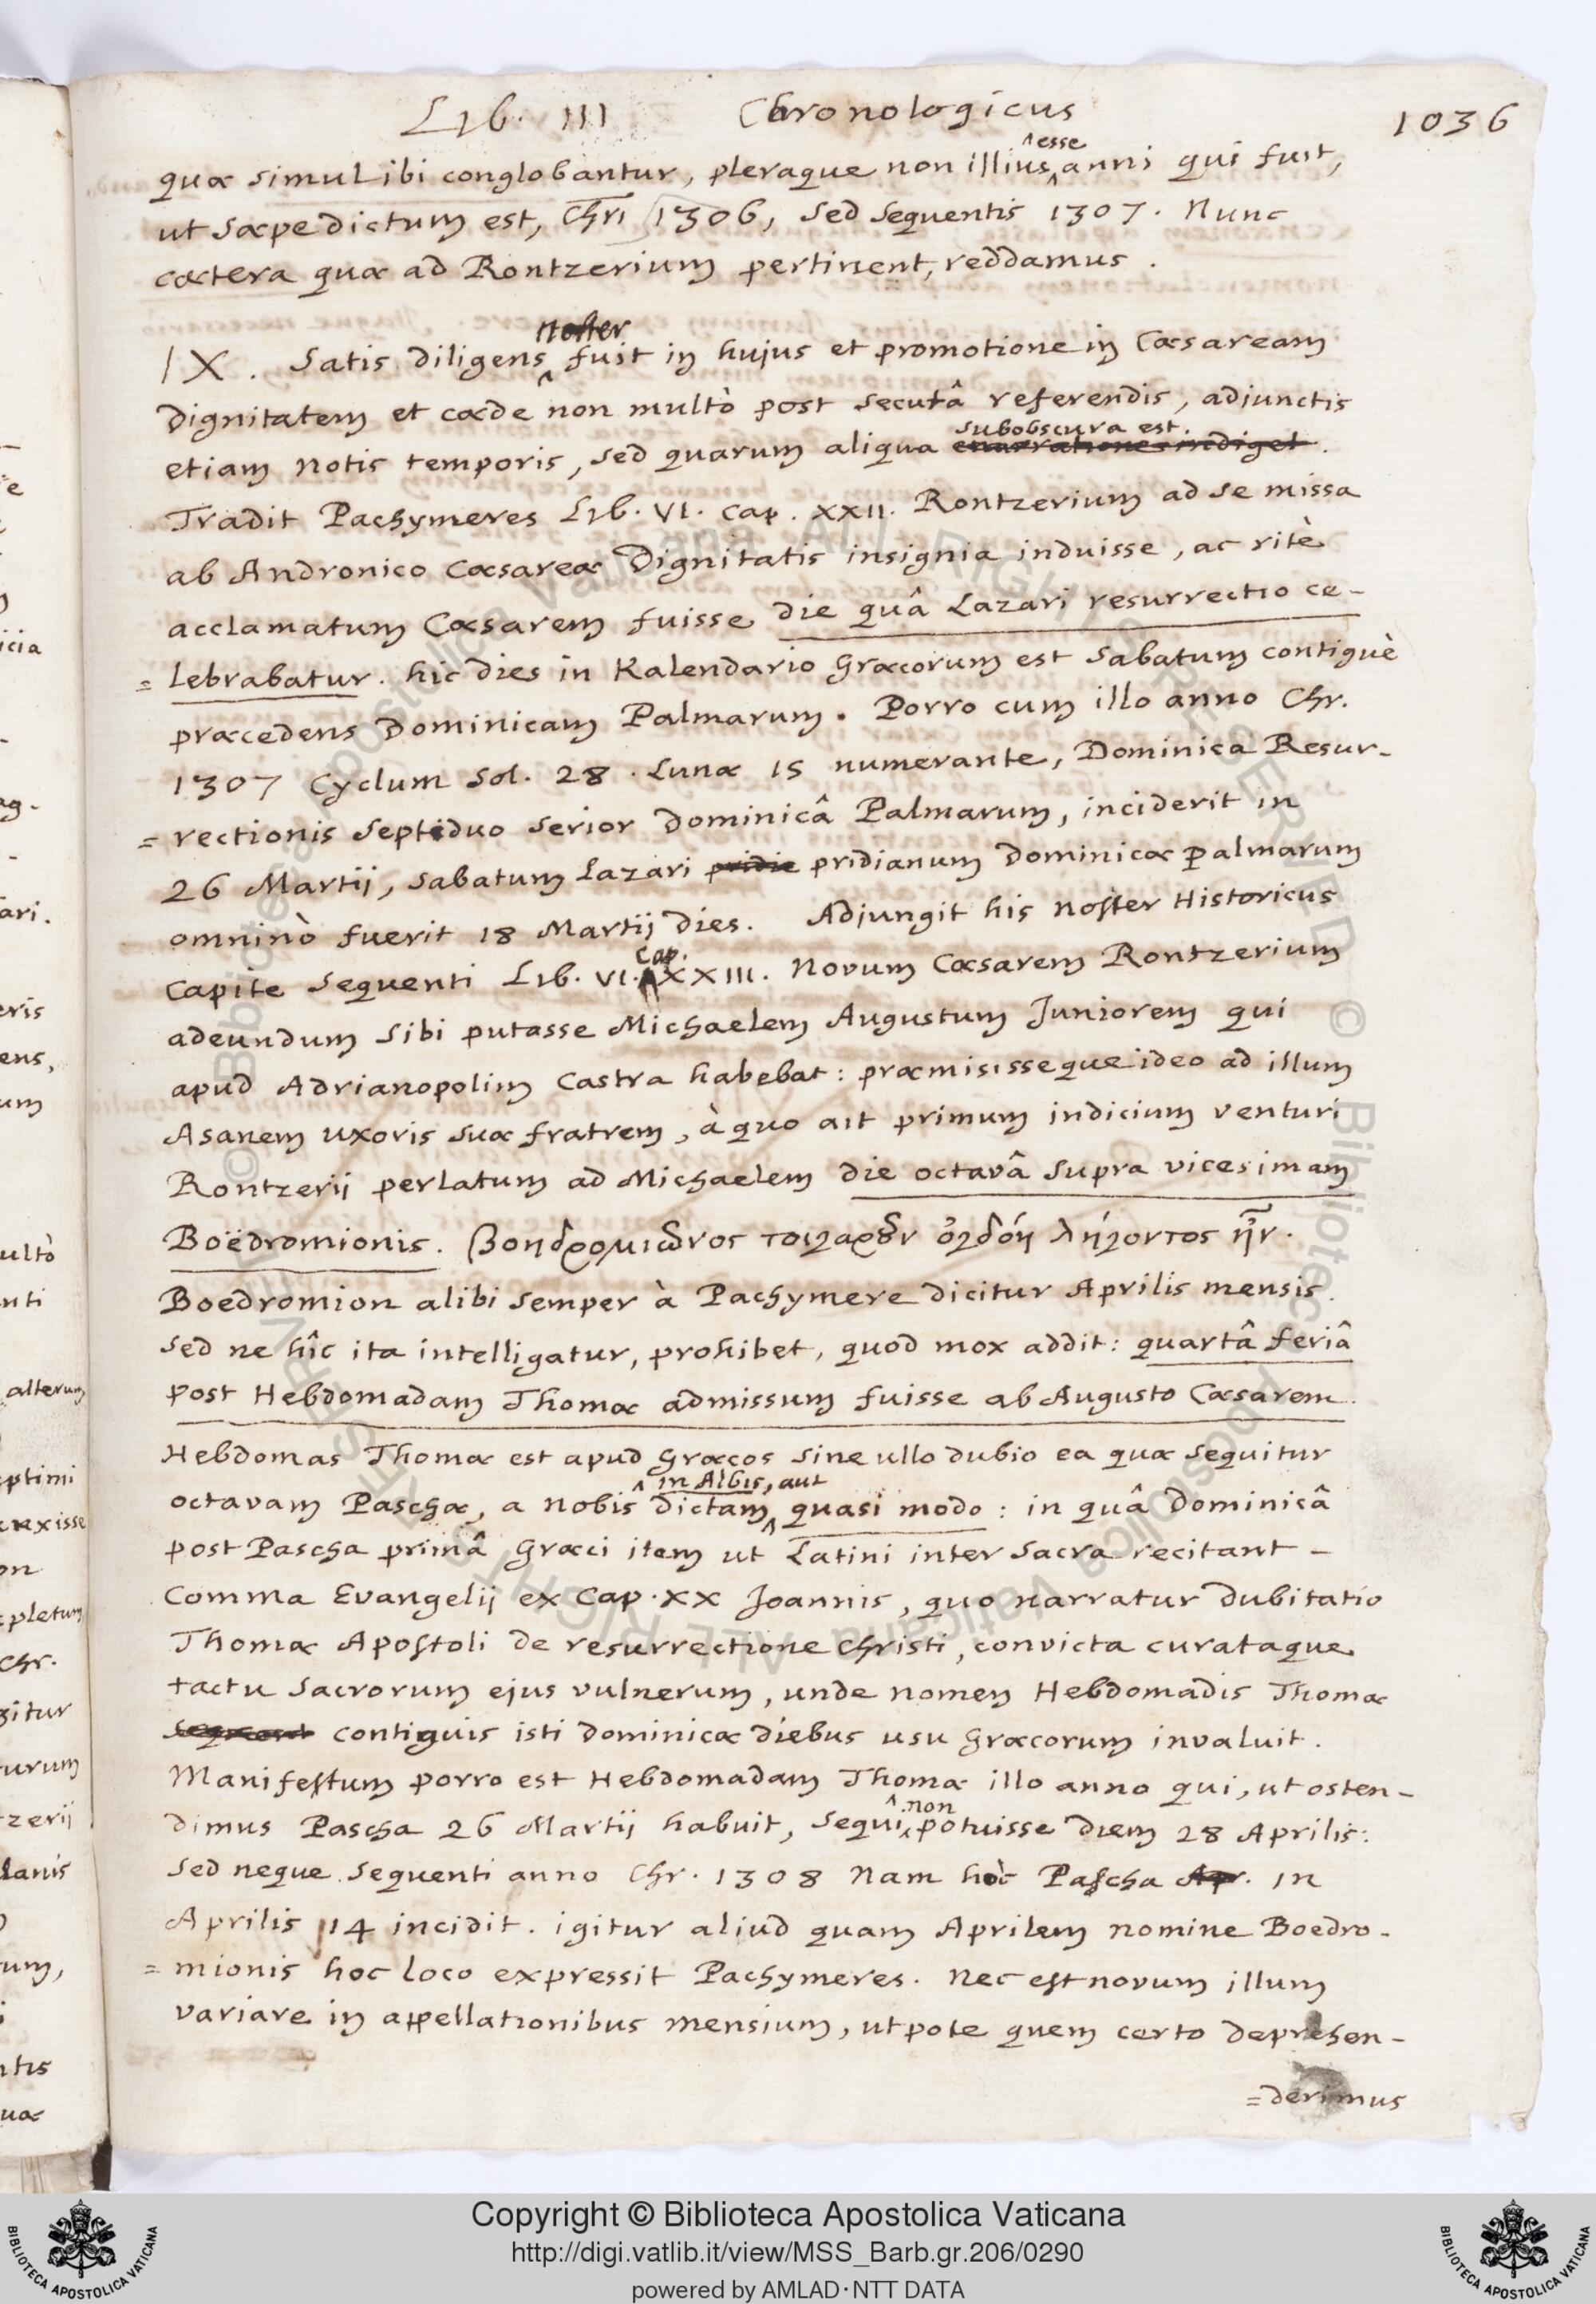 Lib. III Chronologicus 1036
quæ simul ibi conglobantur, pleraque non illius esse anni qui fuit,
ut sæpe dictum est, Chri 1306, sed sequentis 1307. Nunc
cætera quæ ad Rontzerium pertinent, reddamus.
IX. Satis diligens noster fuit in hujus et promotione in Cæsaream
dignitatem et cæde non multò post secutâ referendis, adjunctis
etiam notis temporis, sed quarum aliqua subobscura est.
Tradit Pachymeres Lib. VI. cap. XXII. Rontzerium ad se missa
ab Andronico Cæsareæ Dignitatis insignia induisse, ac ritè
acclamatum Cæsarem fuisse die quâ Lazari resurrectio ce-
=lebrabatur. hic dies in Kalendario Græcorum est Sabatum contiguè
præcedens Dominicam Palmarum. Porro cum illo anno Chr.
1307 Cyclum Sol. 28. Lunæ 15 numerante, Dominica Resur-
=rectionis septiduo serior Dominicâ Palmarum, inciderit in
26 Martij, sabatum Lazari pridie pridianum Dominicæ Palmarum
omninò fuerit 18 Martij dies. Adjungit his noster Historicus
Capite sequenti Lib. VI. Cap. XXIII. Novum Cæsarem Rontzerium
adeundum sibi putasse Michaelem Augustum Juniorem qui
apud Adrianopolim castra habebat: præmisisseque ideo ad illum
Asanem uxoris suæ fratrem, à quo ait primum indicium venturi
Rontzerii perlatum ad Michaelem die octavâ supra vicesimam
Boëdromionis. βοηδρομιῶνος τοιγαροῦν ὀγδόη λήγοντος ἦν.
Boedromion alibi semper à Pachymere dicitur Aprilis mensis.
Sed ne hîc ita intelligatur, prohibet, quod mox addit: quartâ feriâ
post Hebdomadam Thomæ admissum fuisse ab Augusto Cæsarem.
Hebdomas Thomæ est apud Græcos sine ullo dubio ea quæ sequitur
octavam Paschæ, a nobis dictam in Albis, aut quasi modo: in quâ Dominicâ
post Pascha primâ Græci item ut Latini inter sacra recitant
Comma Evangelij ex Cap. XX Joannis, quo narratur dubitatio
Thomæ Apostoli de resurrectione Christi, convicta curataque
tactu sacrorum ejus vulnerum, unde nomen Hebdomadis Thomæ
contiguis isti dominicæ diebus usu Græcorum invaluit.
Manifestum porro est Hebdomadam Thomæ illo anno qui, ut osten-
dimus Pascha 26 Martij habuit, sequi non potuisse diem 28 Aprilis:
Sed neque sequenti anno Chr. 1308 Nam hòc Pascha Apr. in
Aprilis 14 incidit. igitur aliud quam Aprilem nomine Boedro-
=mionis hoc loco expressit Pachymeres. Nec est novum illum
variare in appellationibus mensium, utpote quem certo deprehen-
=derimus
Copyright © Biblioteca Apostolica Vaticana
http://digi.vatlib.it/view/MSS_Barb.gr.206/0290
powered by AMLAD·NTT DATA